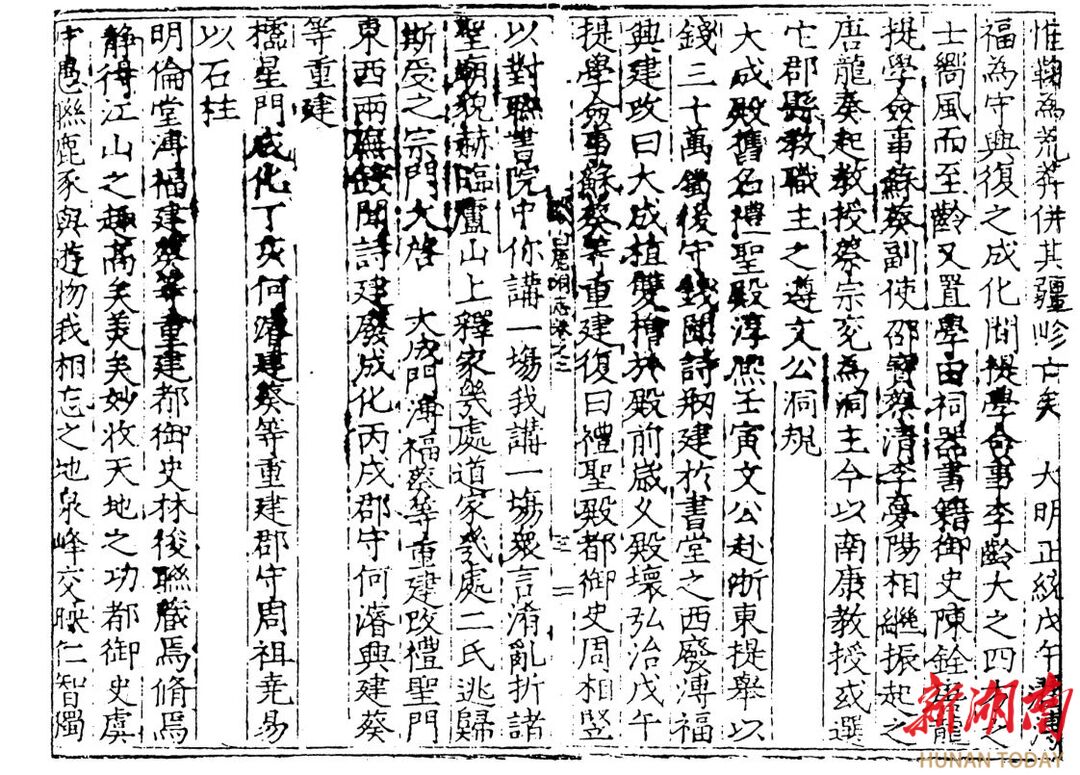 惟鞠為荒莽併其疆畛亡矣　大明正統戊午溥
福為守興復之成化間提學僉事李齡大之四方之
士嚮風而至齡又置學田祠器書籍御史陳銓唐龍
提學僉事蘇葵副使邵寶蔡清李夢陽相繼振起之
唐龍奏起教授蔡宗兗為洞主今以南康教授或選
它郡縣教職主之遵文公洞規
大成殿舊名禮聖殿淳熙壬寅文公赴浙東提舉以
錢三十萬屬後守錢聞詩刱建於書堂之西廢溥福
興建改曰大成植雙檜於殿前歲久殿壞弘治戊午
提學僉事蘇葵等重建復曰禮聖殿都御史周相豎
白鹿洞志卷之三　三
以對聯書院中你講一塲我講一塲衆言淆亂折諸
聖廟貌赫臨廬山上釋家幾處道家幾處二氏逃歸
斯受之宗門大啓　大成門溥福葵等重建改禮聖門
東西兩廡錢聞詩建廢成化丙戌郡守何濬興建葵
等重建
櫺星門成化丁亥何濬建葵等重建郡守周祖堯易
以石柱
明倫堂溥福建葵等重建都御史林俊聯藏焉脩焉
静得江山之趣高矣美矣妙收天地之功都御史虞
守愚聯鹿豕與遊物我相忘之地泉峰交映仁智獨
新湖南
HUNAN TODAY